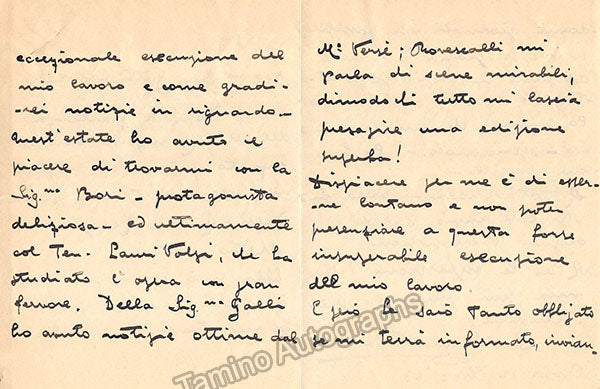 eccezionale esecuzione del
mio lavoro e come gradi-
-rei notizie in riguardo -
Quest'estate ho avuto il
piacere di trovarmi con la
Sig.na Bori - protagonista
deliziosa - ed ultimamente
col Ten. Lauri Volpi, che ha
studiato l'opera con gran
fervore. Della Sig.na Galli
ho avuto notizie ottime dal
Mo Versé; Rovescalli mi
parla di scene mirabili,
dimodoché tutto mi lascia
presagire una edizione
superba!
Dispiacere per me è di esser-
-ne lontano e non poter
presenziare a questa forse
insuperabile esecuzione
del mio lavoro.
E più le sarò tanto obbligato
se mi terrà informato, invian-
Tamino Autographs